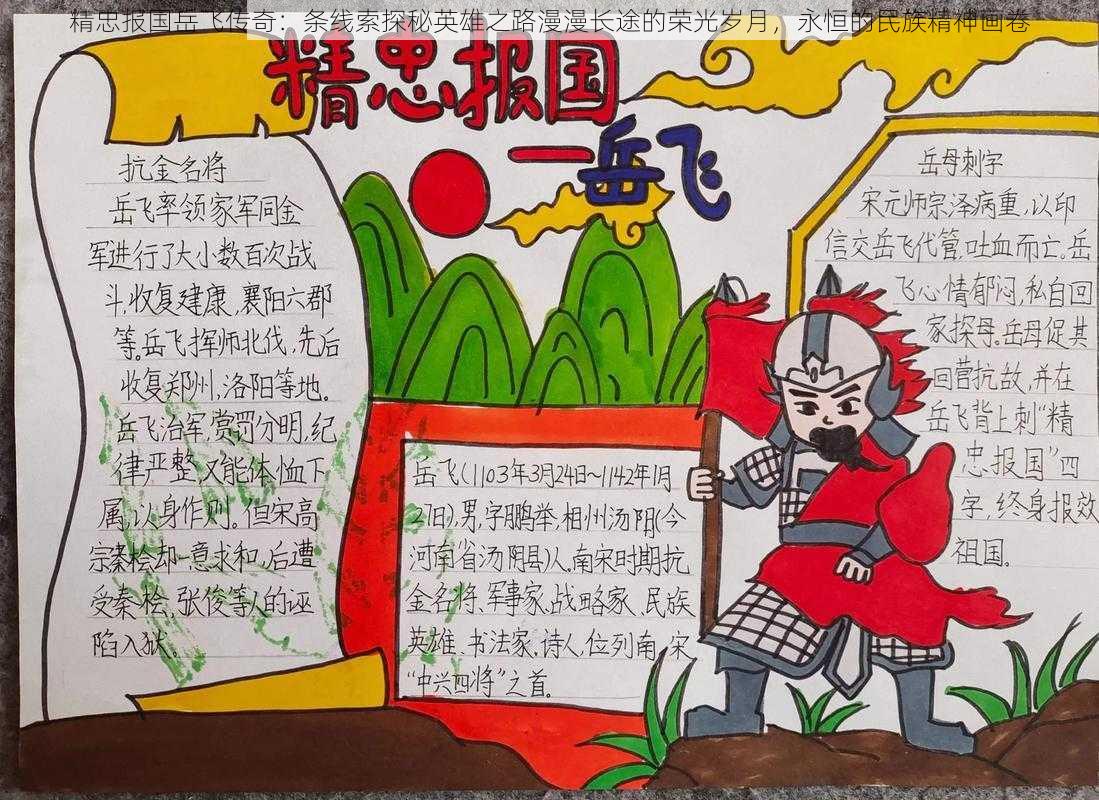 精忠报国岳飞传奇：条线索探秘英雄之路漫漫长途的荣光岁月，永恒的民族精神画卷
精忠报国
一岳飞
抗金名将
岳飞率领家军同金
军进行了大小数百次战
斗,收复建康,襄阳六郡
等。岳飞挥师北伐,先后
收复郑州,洛阳等地。
岳飞治军,赏罚分明,纪
律严整,又能体恤下
属,以身作则。但宋高
宗秦桧却一意求和,后遭
受秦桧,张俊等人的诬
陷入狱。
岳飞(1103年3月24日~1142年1月
27日),男,字鹏举,相州汤阴(今
河南省汤阴县)人。南宋时期抗
金名将、军事家、战略家、民族
英雄、书法家、诗人,位列南,宋
“中兴四将”之首。
岳母刺字
宋元师宗泽病重,以印
信交岳飞代管,吐血而亡。岳
飞心情郁闷,私自回
家探母。岳母促其
回营抗敌,并在
岳飞背上刺“精
忠报国”四
字,终身报效
祖国。